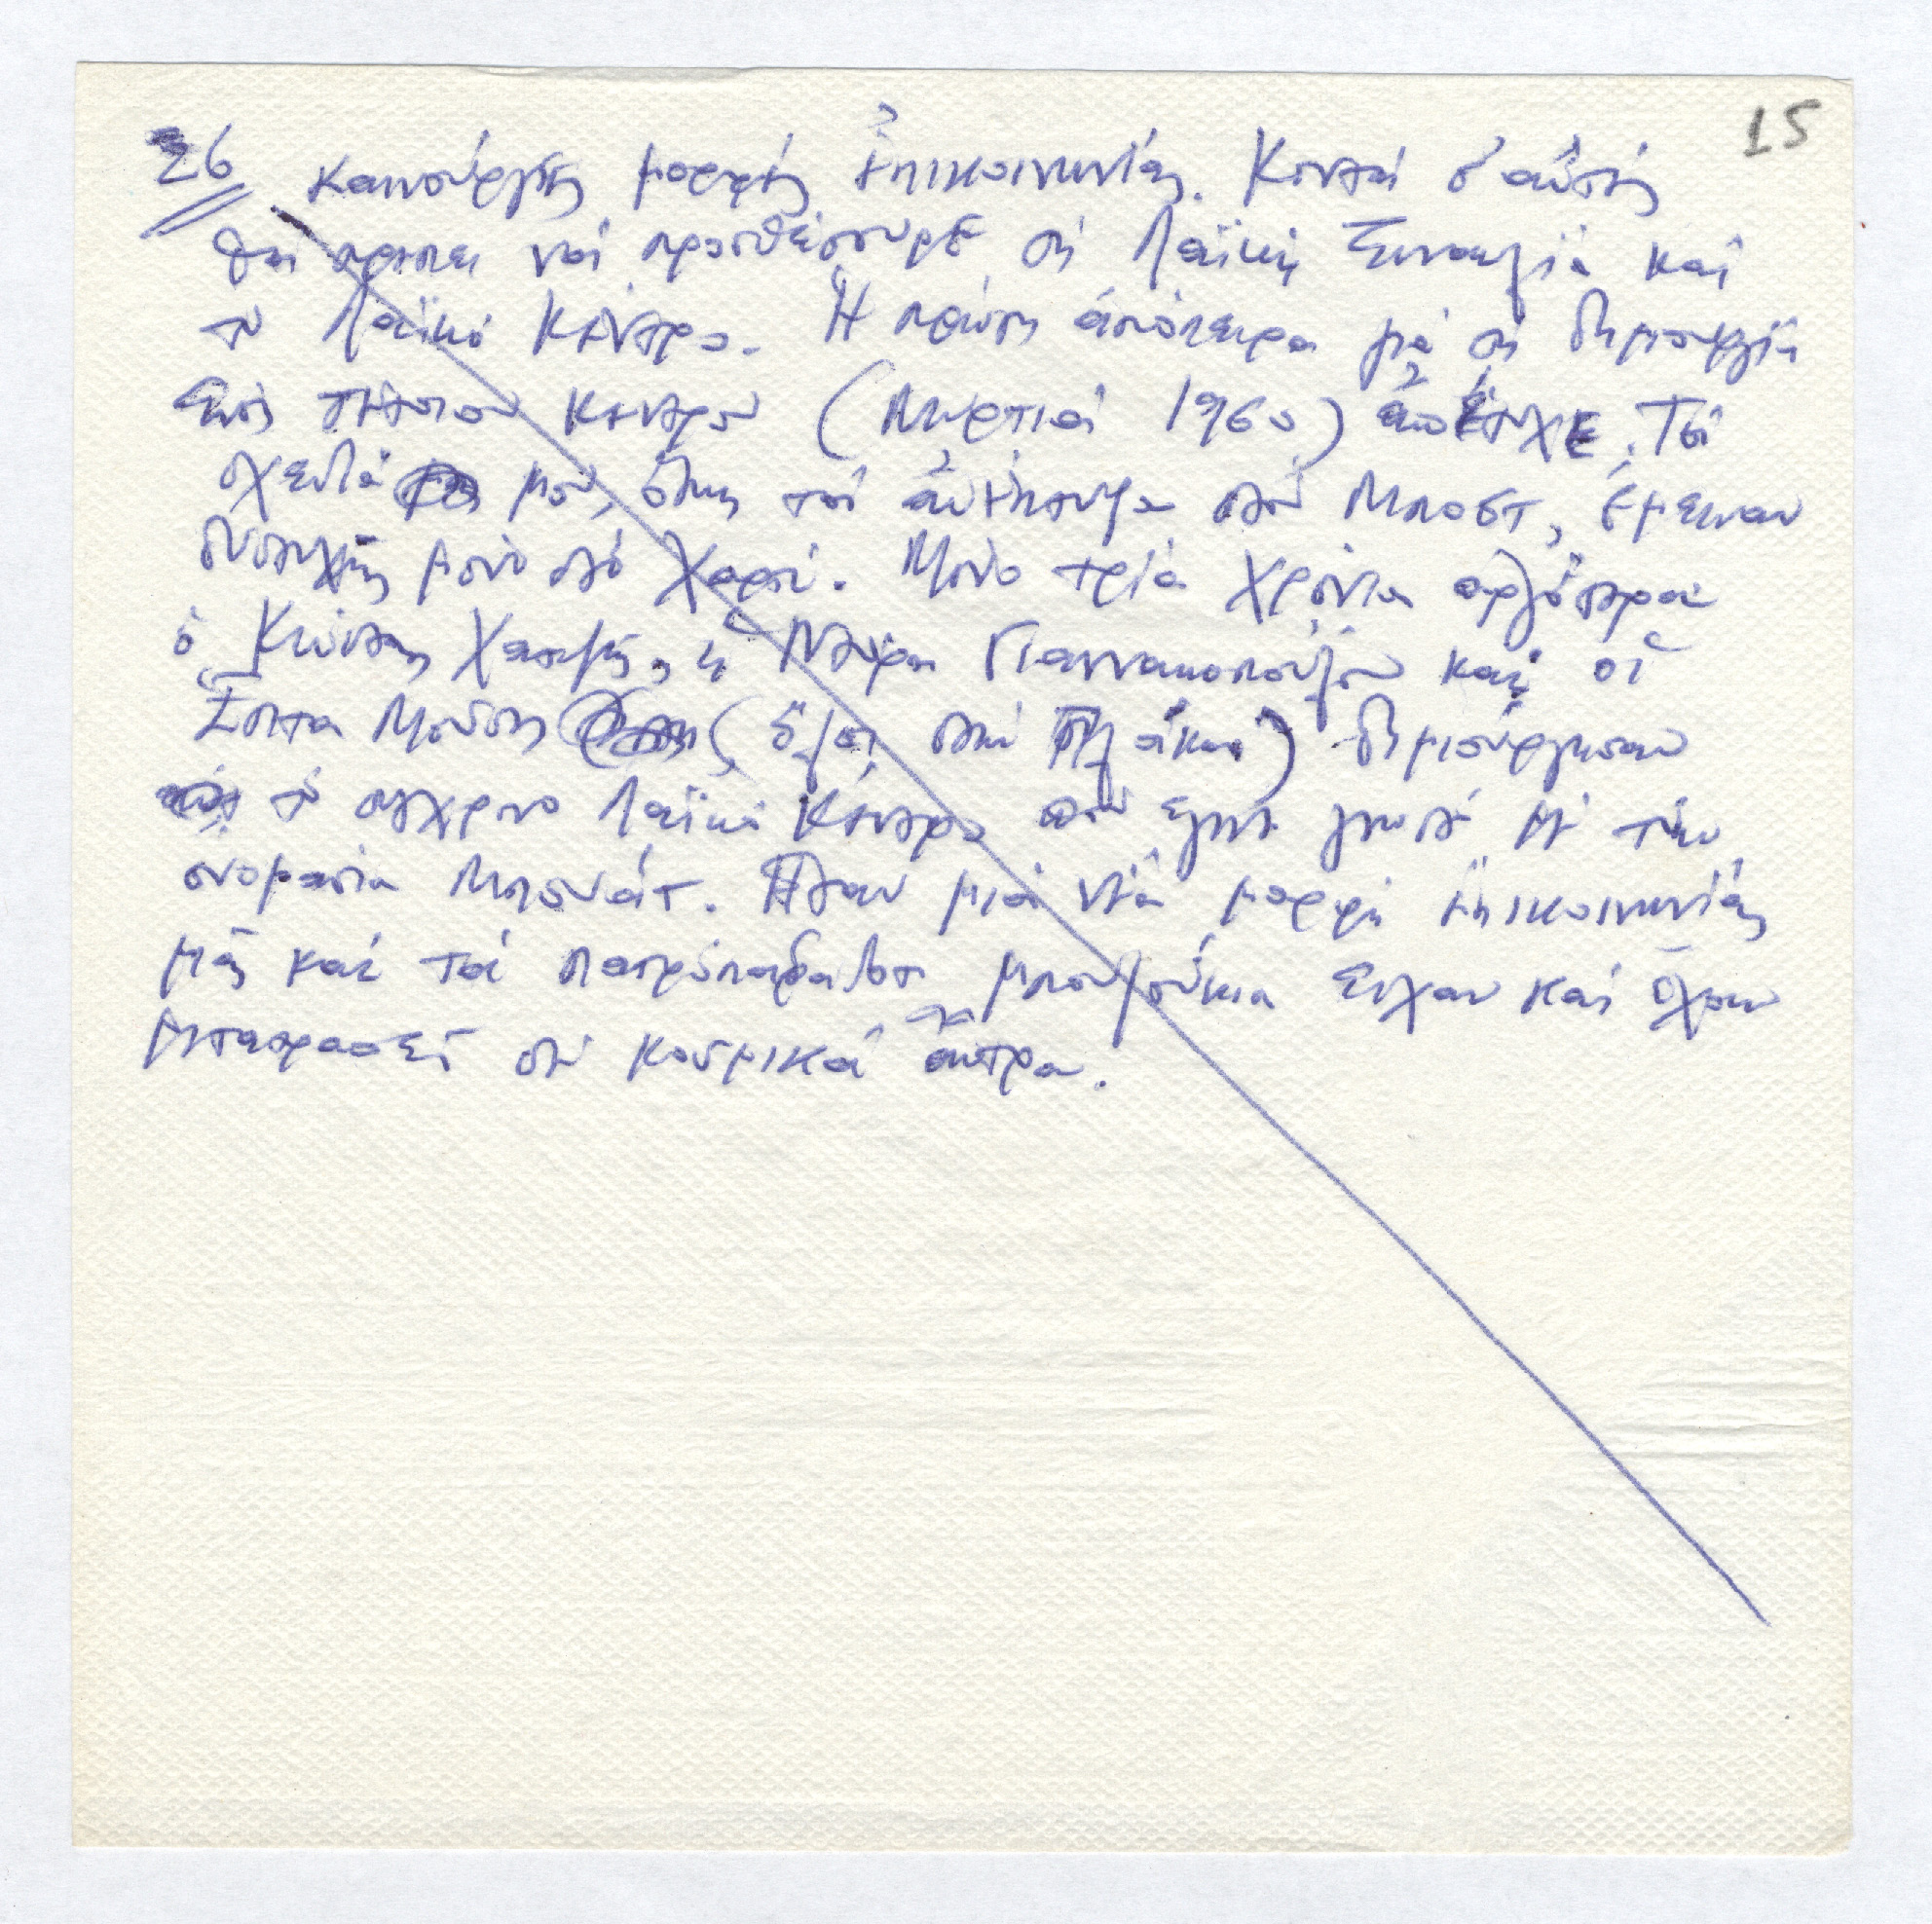 15
26 καινούργιας μορφῆς ἐπικοινωνίας. Κοντά σ' αὐτές
θά πρέπει νά προσθέσουμε τή Λαϊκή Συναυλία καί
τό Λαϊκό Κέντρο. Ἡ πρώτη ἀπόπειρα γιά τή δημιουργία
ἑνός τέτοιου κέντρου (Μυρτιά 1960) ἀπέτυχε. Τά
σχέδιά μου, ὅπως τά ἀντίστοιχα τοῦ Μποστ, ἔμειναν
δυστυχῶς μόνο στό χαρτί. Μόνο τρία χρόνια ἀργότερα
ὁ Κώστας Χατζῆς, ἡ Πλάτρα Γιαννακοπούλου καί οἱ
(ὅλοι στήν Πλάκα) δημιούργησαν
τό σύγχρονο Λαϊκό Κέντρο πού ἔγινε γνωστό μέ τήν
ὀνομασία Μπουάτ. Ἦταν μιά νέα μορφή ἐπικοινωνίας
μιᾶς καί τά πατροπαράδοτα μπουζούκια εἶχαν καί ἔχουν
μετατραπεῖ σέ κοσμικά κέντρα.